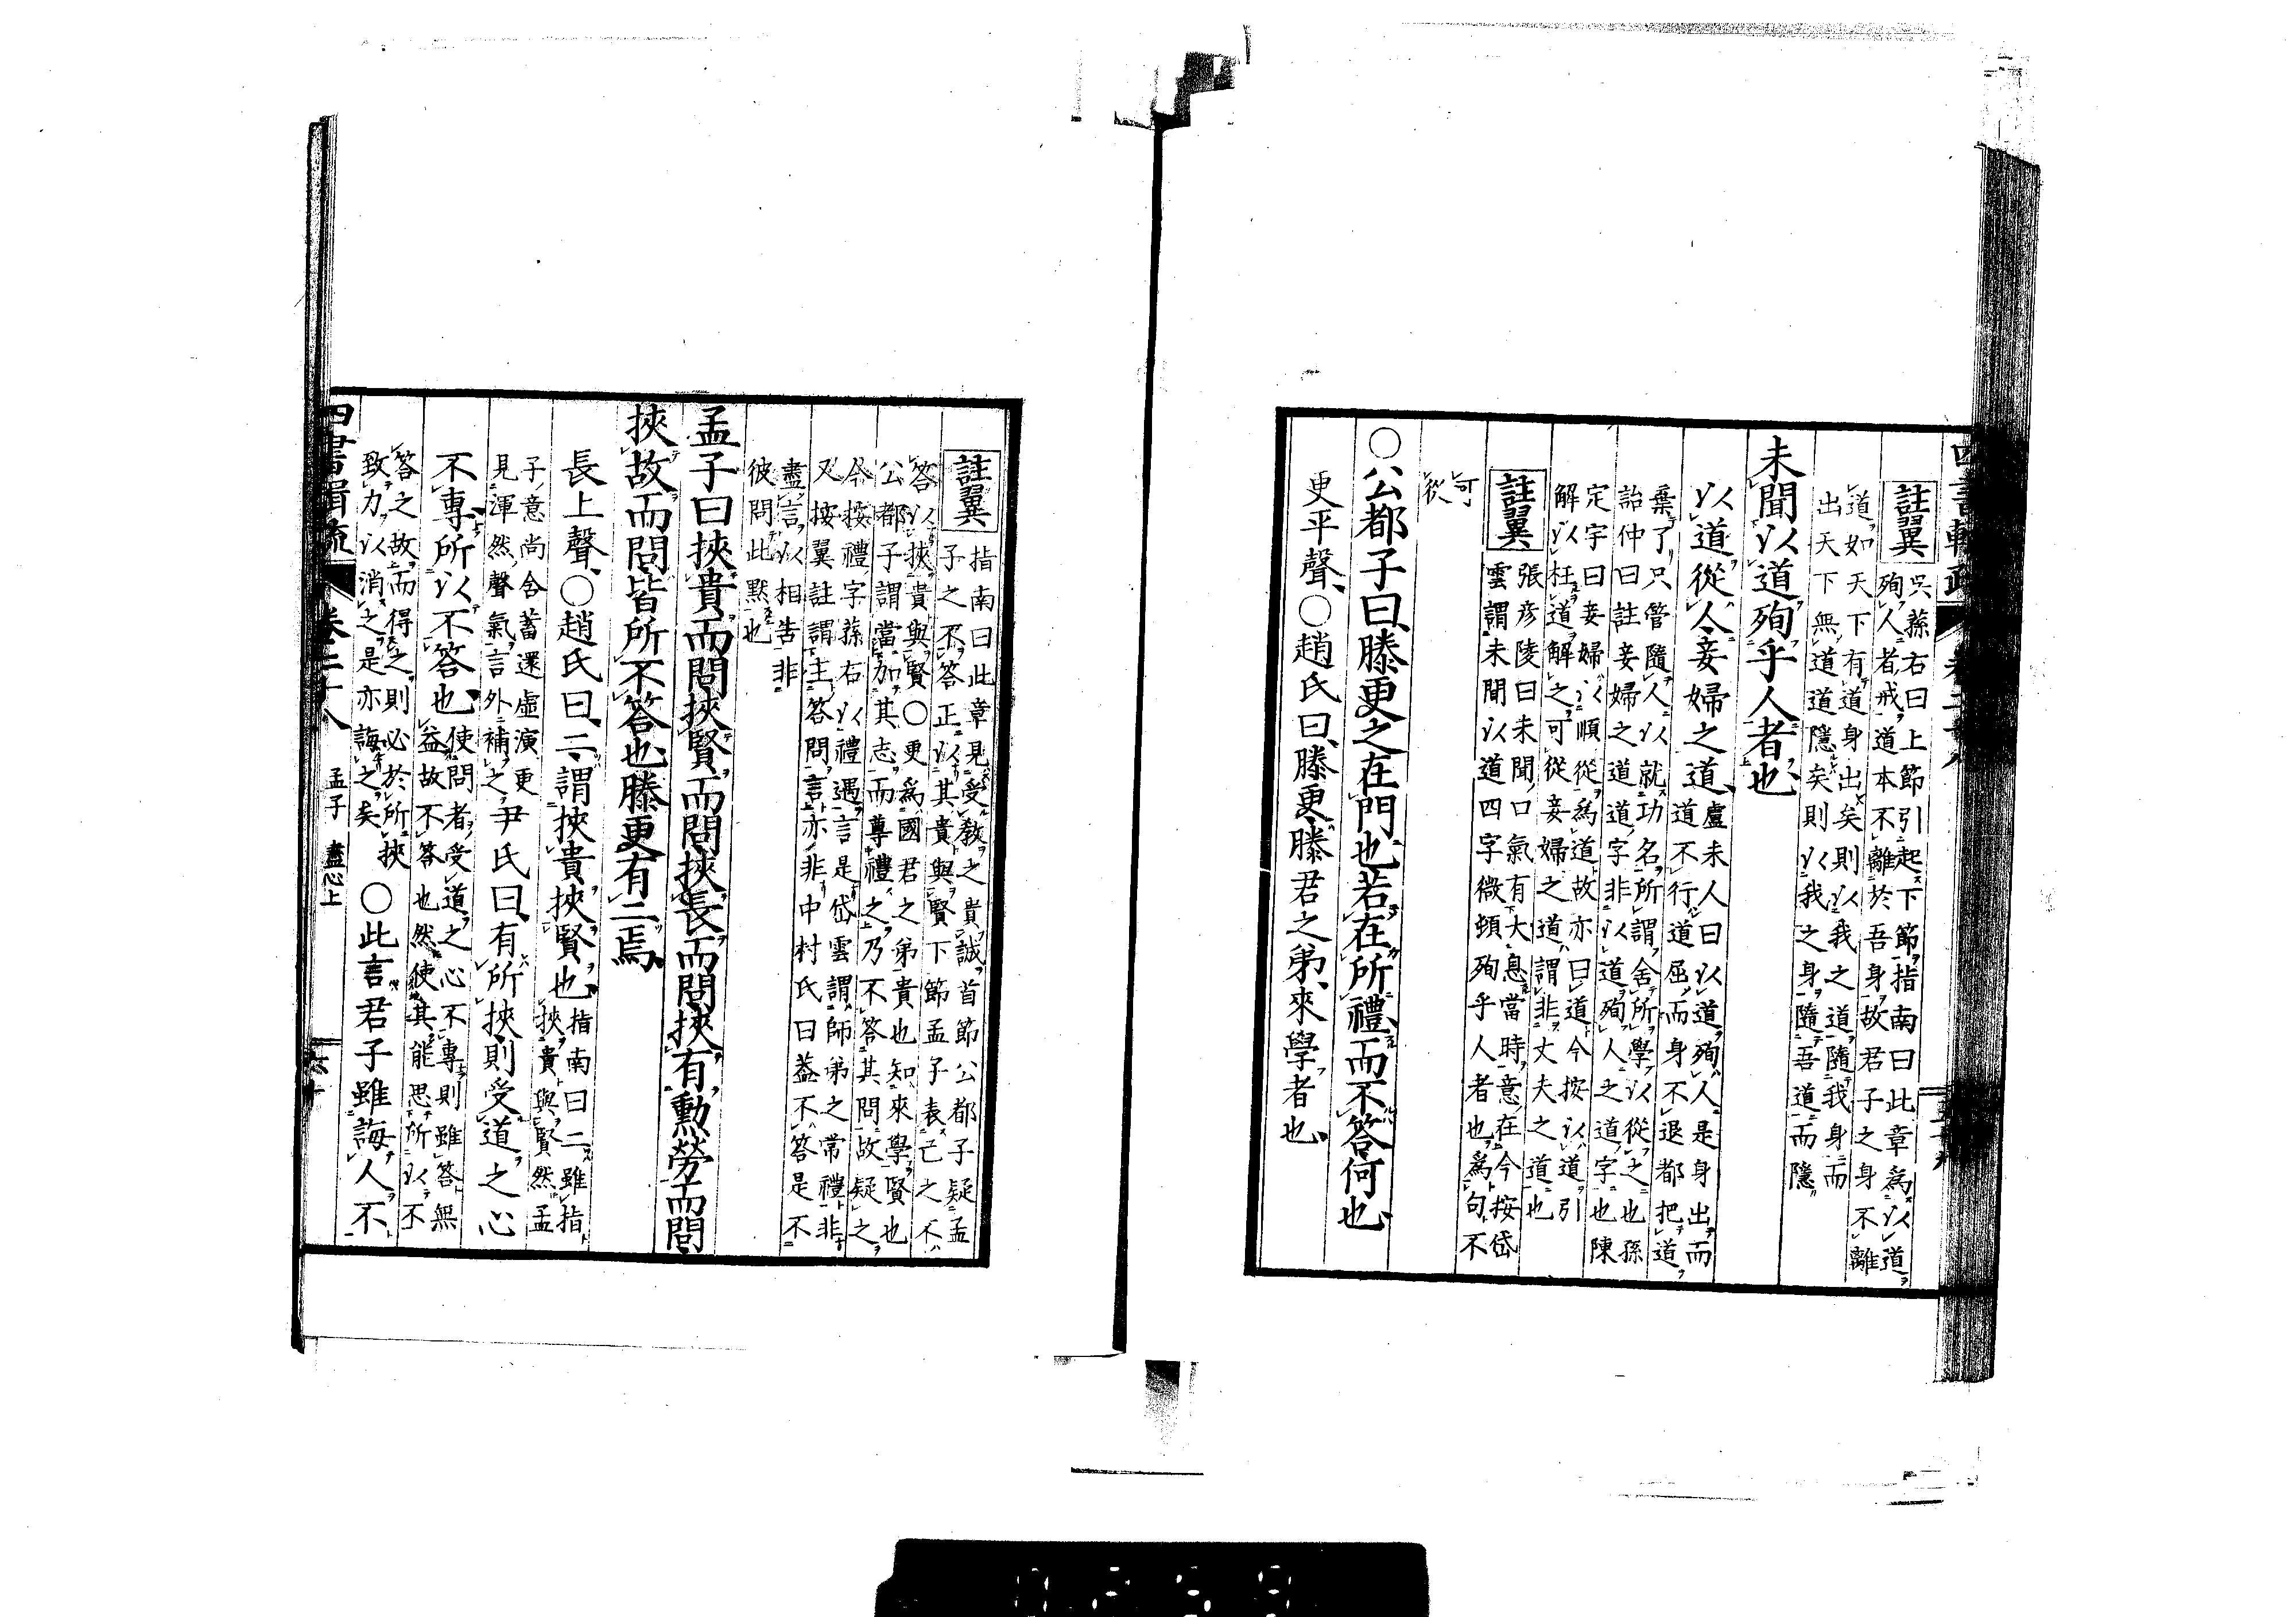 四書輯疏
註翼
吳蓀右曰上節引起下節指南曰此章爲以道
殉人者戒道本不離於吾身故君子之身不離
道如天下有道身出矣則以我之道隨我身而
出天下無道道隱矣則以我之身隨吾道而隱
未聞以道殉乎人者也
以道從人妾婦之道
盧未人曰以道殉人是身出而
道不行道屈而身不退都把道
棄了只管隨人以就功名所謂舍所學以從之也孫
詒仲曰註妾婦之道道字非以道殉人之道字也陳
定宇曰妾婦以順從爲道故亦曰道今按以道引
解以枉道解之可從妾婦之道謂非丈夫之道也
註翼
張彦陵曰未聞口氣有大息當時意在今按岱
雲謂未聞以道四字微頓殉乎人者也爲句不
可
從
○公都子曰滕更之在門也若在所禮而不答何也
更平聲○趙氏曰滕更滕君之弟來學者也
註翼
指南曰此章見受敎之貴誠首節公都子疑孟
子之不答正以其貴與賢下節孟子表己之不
答以挾貴與賢○更爲國君之弟貴也知來學賢也
公都子謂當加其志而尊禮之乃不答其問故疑之
今按禮字蓀右以禮遇言是岱雲謂師弟之常禮非
又按翼註謂主答問言亦非中村氏曰蓋不答是不
盡言以相告非
彼問此默也
孟子曰挾貴而問挾賢而問挾長而問挾有勳勞而問
挾故而問皆所不答也滕更有二焉
長上聲○趙氏曰二謂挾貴挾賢也
指南曰二雖指
挾貴與賢然孟
子意尚含蓄還虛演更
見渾然聲氣言外補之
尹氏曰有所挾則受道之心
不專所以不答也
使問者受道之心不專則雖答無
益故不答也然使其能思所以不
答之故而得之則必於所挾
致力以消之是亦誨之矣
○此言君子雖誨人不
四書輯疏
卷二十八
孟子
盡心上
六十